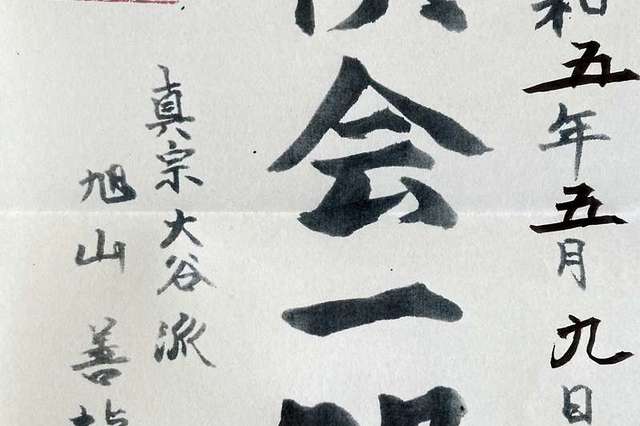 和五年五月九日
会一
真宗大谷派
旭山 善